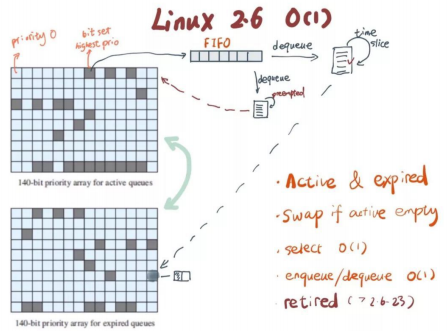 Linux 2.6 O(1)
priority 0
bit set
highest prio
FIFO
dequeue
time
slice
dequeue
preempted
140-bit priority array for active queues
140-bit priority array for expired queues
· Active & expired
· Swap if active empty
· select O(1)
· enqueue/dequeue O(1)
· retired (>2.6.23)